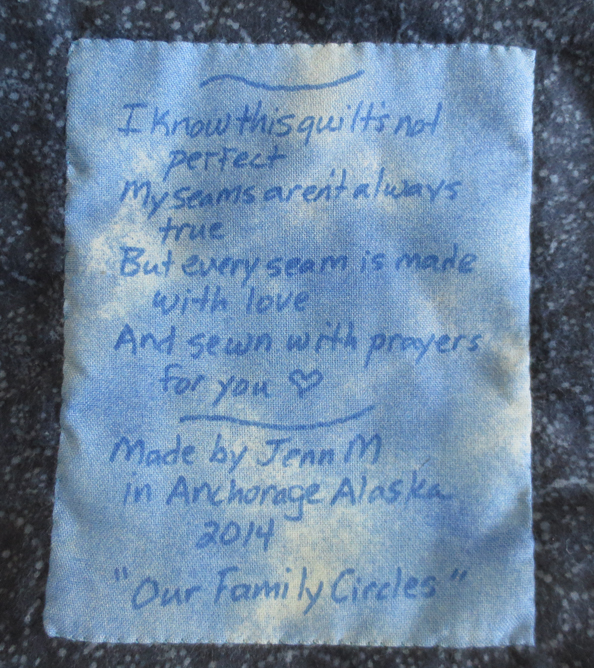 I know this quilt's not
perfect
My seams aren't always
true
But every seam is made
with love
And sewn with prayers
for you ♡
Made by Jenn M
in Anchorage Alaska
2014
"Our Family Circles"